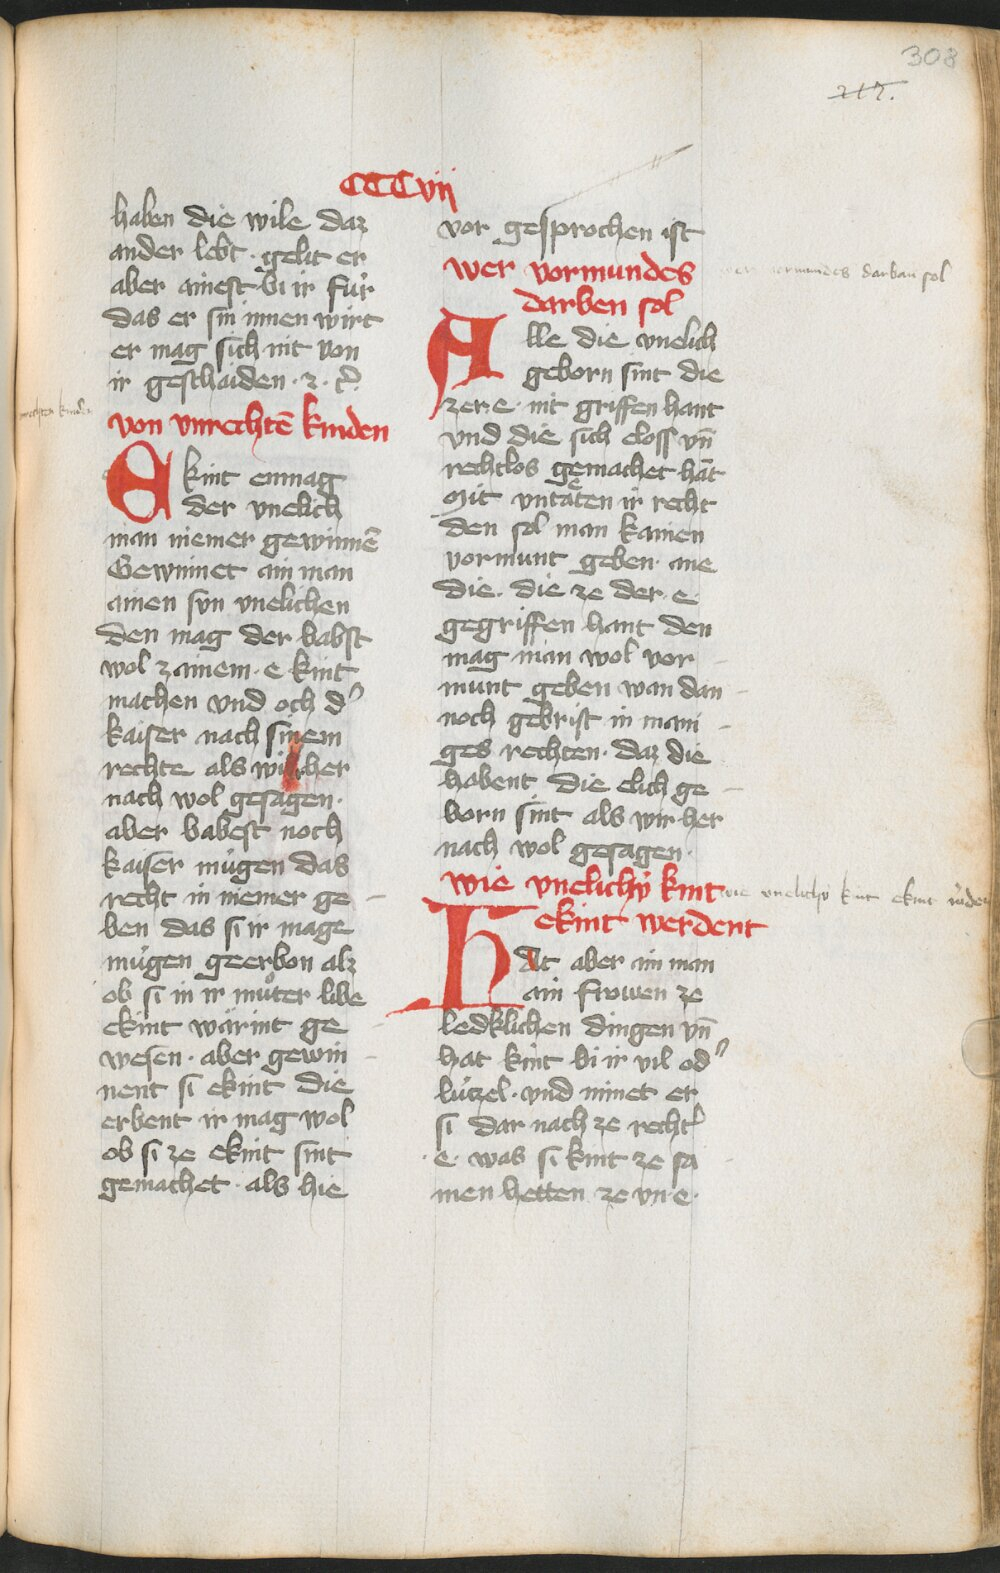 308
217.
CCCvii
haben die wile daz
ander lebt · gelit er
aber ainest bi ir fúr
das er sin innen wirt
er mag sich nit von
ir geschaiden · z · c̃
von vnrechtē kinden
Ekint enmag
der vnelich
man niemer gewinnē
Gewinnet ain man
ainen svn vnelichen
den mag der babst
wol zainem · e kint
machen vnd och d᾽
kaiser nach sinem
rechte als wir her
nach wol gesagen ·
aber babest noch
kaiser múgen das
recht in niemer ge
ben das si ir mage
múgen geerbon alz
ob si in ir můter libe
ekint wárint ge
wesen · aber gewin
nent si ekint die
erbent ir mag wol
ob si ze ekint sint
gemachet · als hie
vor gesprochen ist
wer vormundes
darben sol
wer vormundes darban sol
Alle die vnelich
geborn sint die
zer · e · nit griffen hant
vnd die sich eloss vn̄
rechtlos gemachet hāt
mit vntäten ir recht
den sol man kainen
vormunt geben · ane
die · die ze der · e ·
gegriffen hant den
mag man wol vor
munt geben wan dan
noch gebrist in mani
ges rechten · daz die
habent die elich ge
born sint als wir her
nach wol gesagen ·
wie vnelichý kint
wie vnelichý kint ekint
ekint werdent
Hat aber ain man
ain frowen ze
ledklichen dingen vn̄
hat kint bi ir vil od᾽
lúzel · vnd nimet er
si dar nach ze recht᾽
e · was si kint ze sa
men hetten ze vn · e ·